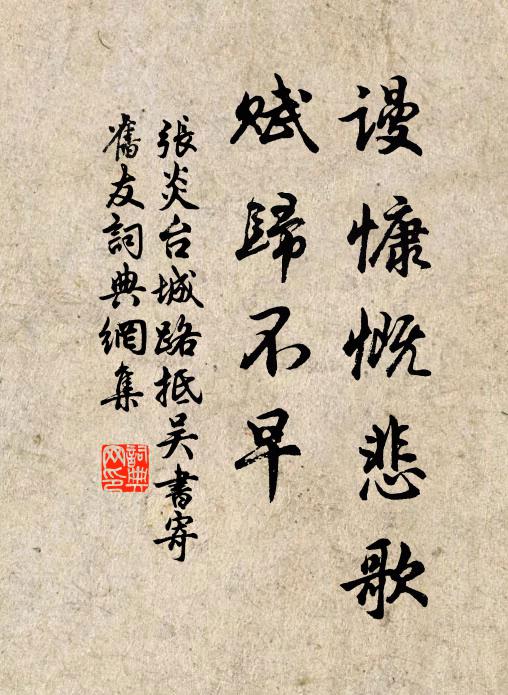 謾慷慨悲歌
賦歸不早
張炎台城路抵吴書寄
舊友詞典網集
詞典
网印